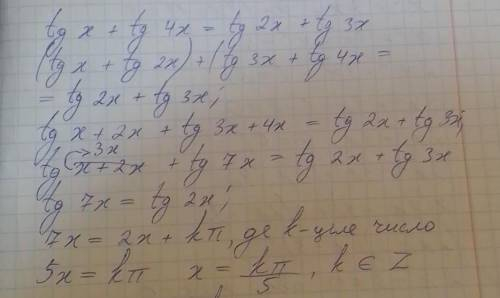 tg x + tg 4x = tg 2x + tg 3x
(tg x + tg 2x) + (tg 3x + tg 4x =
= tg 2x + tg 3x;
tg x + 2x + tg 3x + 4x = tg 2x + tg 3x;
3x
tg x + 2x + tg 7x = tg 2x + tg 3x
tg 7x = tg 2x;
7x = 2x + kπ, де k - ціле число
5x = kπ x = kπ/5, k ∈ Z